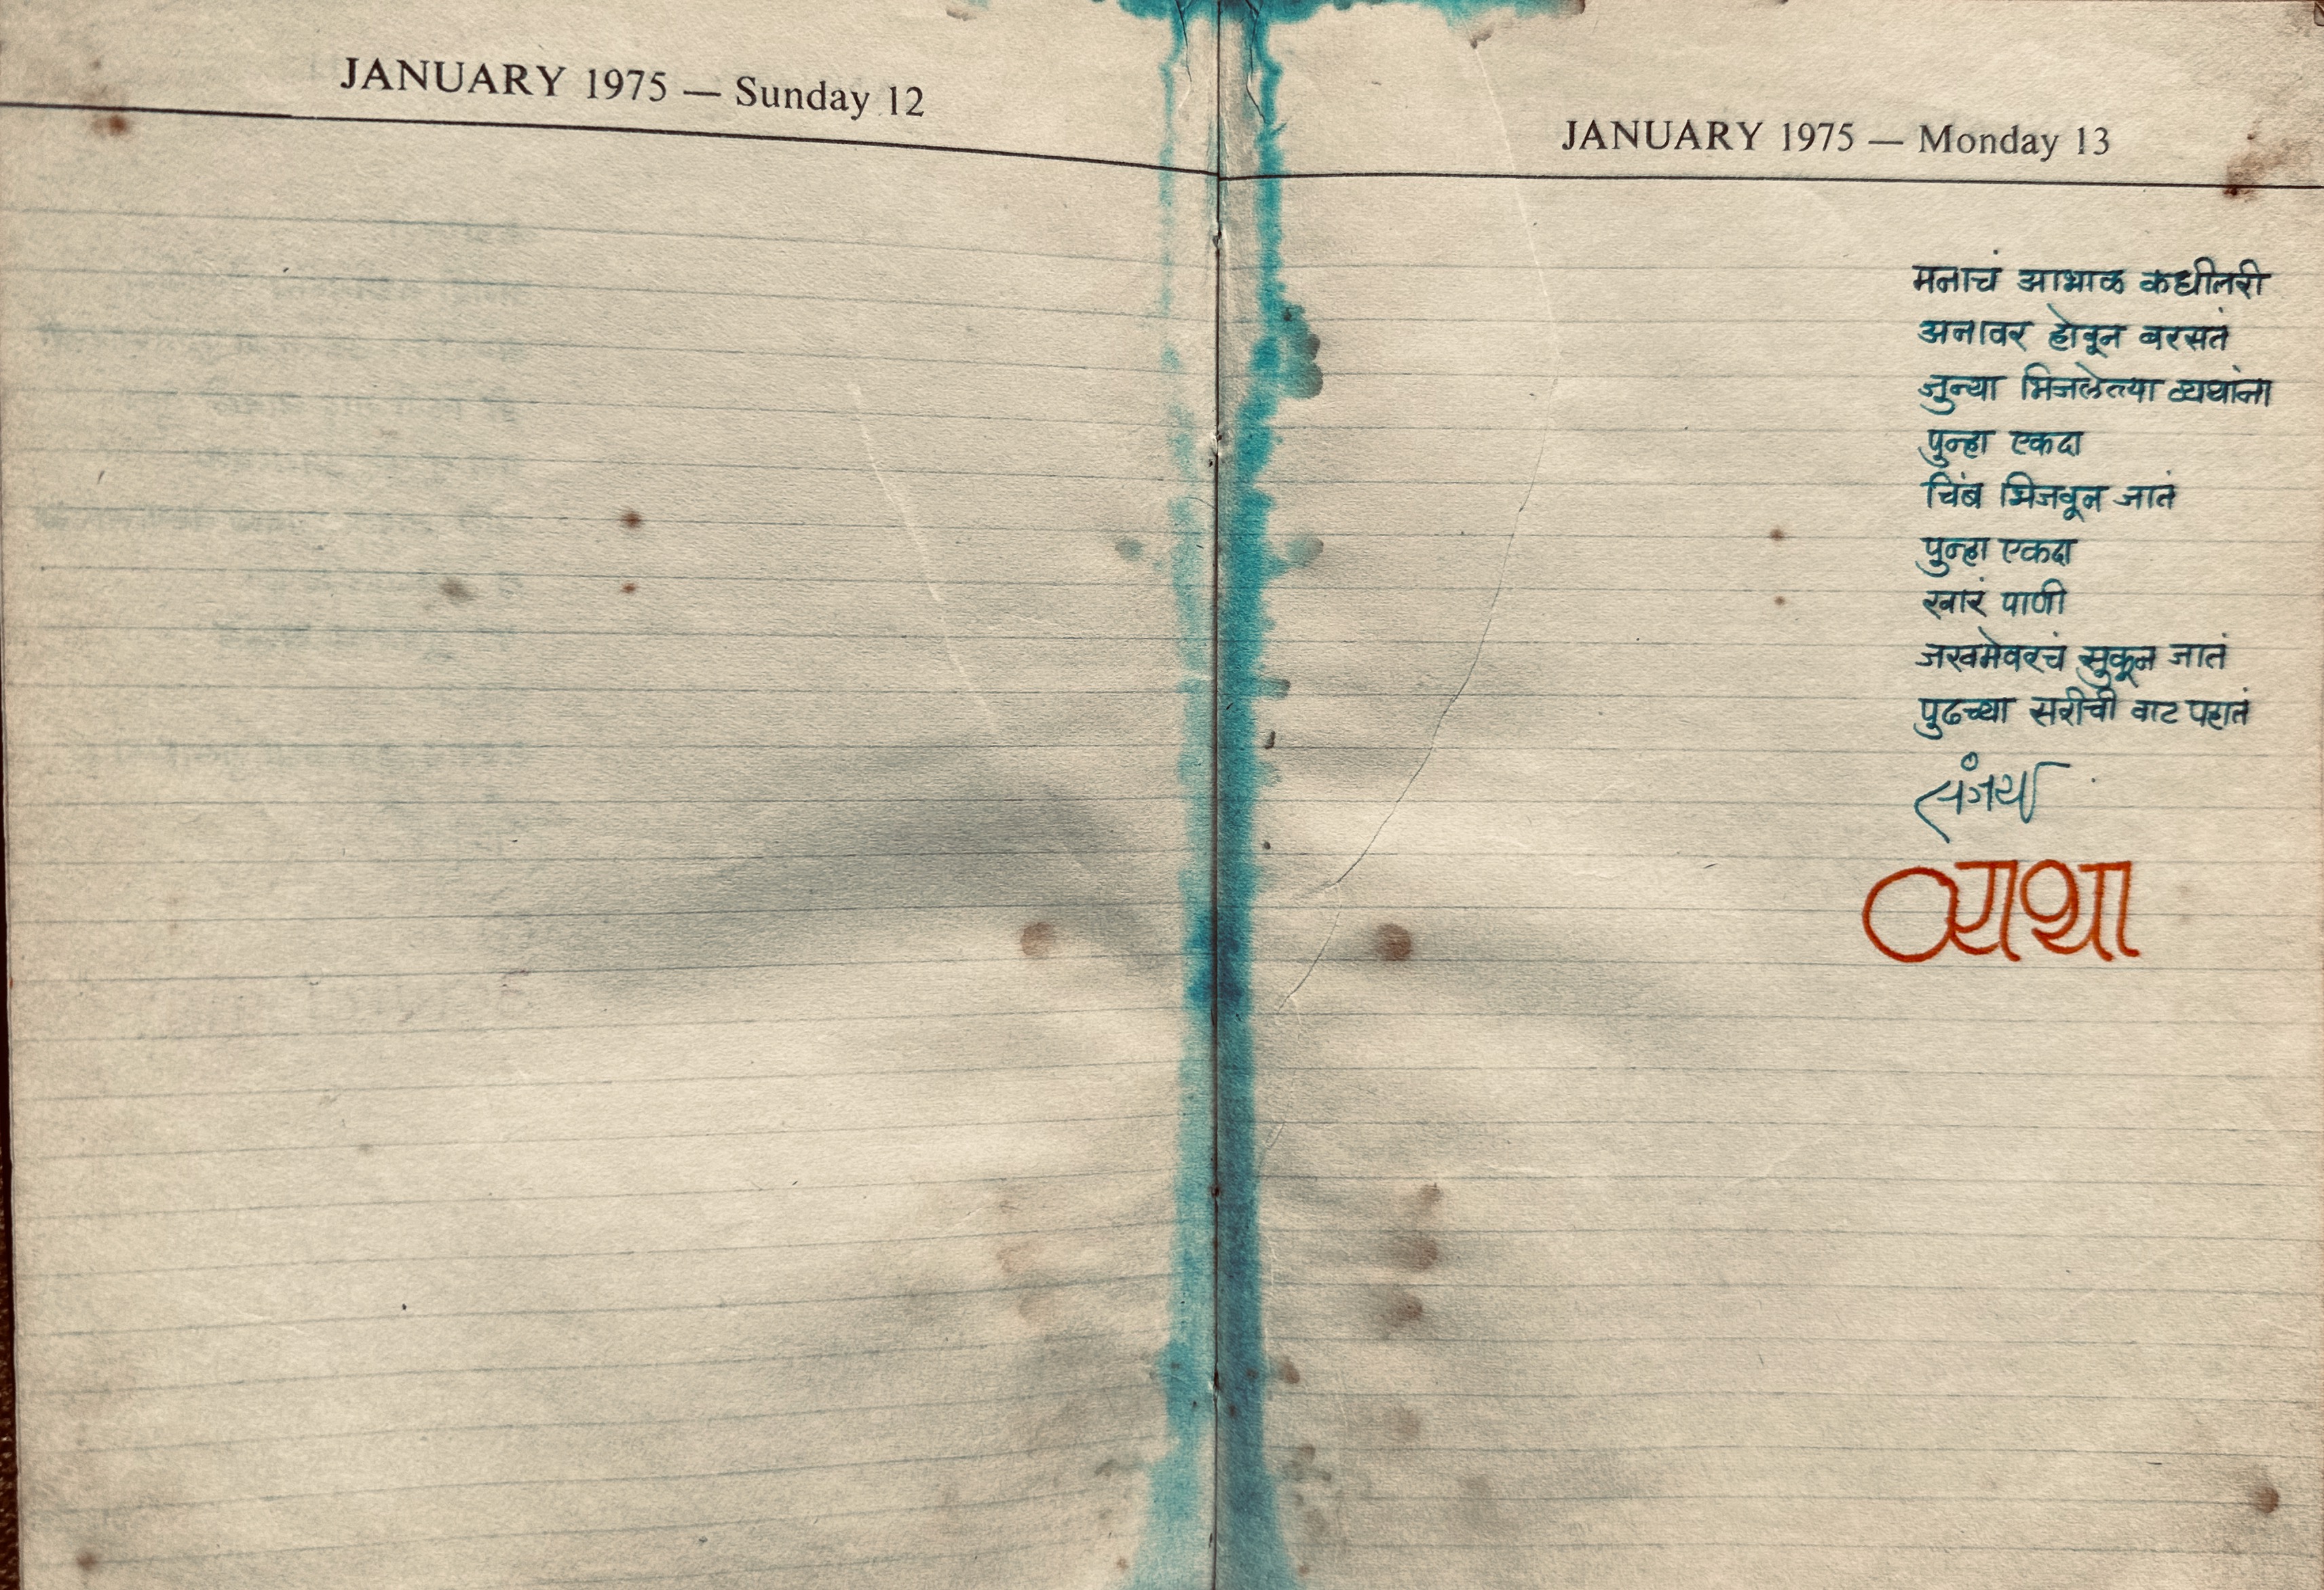 JANUARY 1975 — Sunday 12
JANUARY 1975 — Monday 13
मनाचं आभाळ कधीतरी
अनावर होवून बरसतं
जुन्या भिजलेल्या व्यथांना
पुन्हा एकदा
चिंब भिजवून जातं
पुन्हा एकदा
खारं पाणी
जखमेवरचं सुकून जातं
पुढच्या सरीची वाट पहातं
संजय
व्यथा